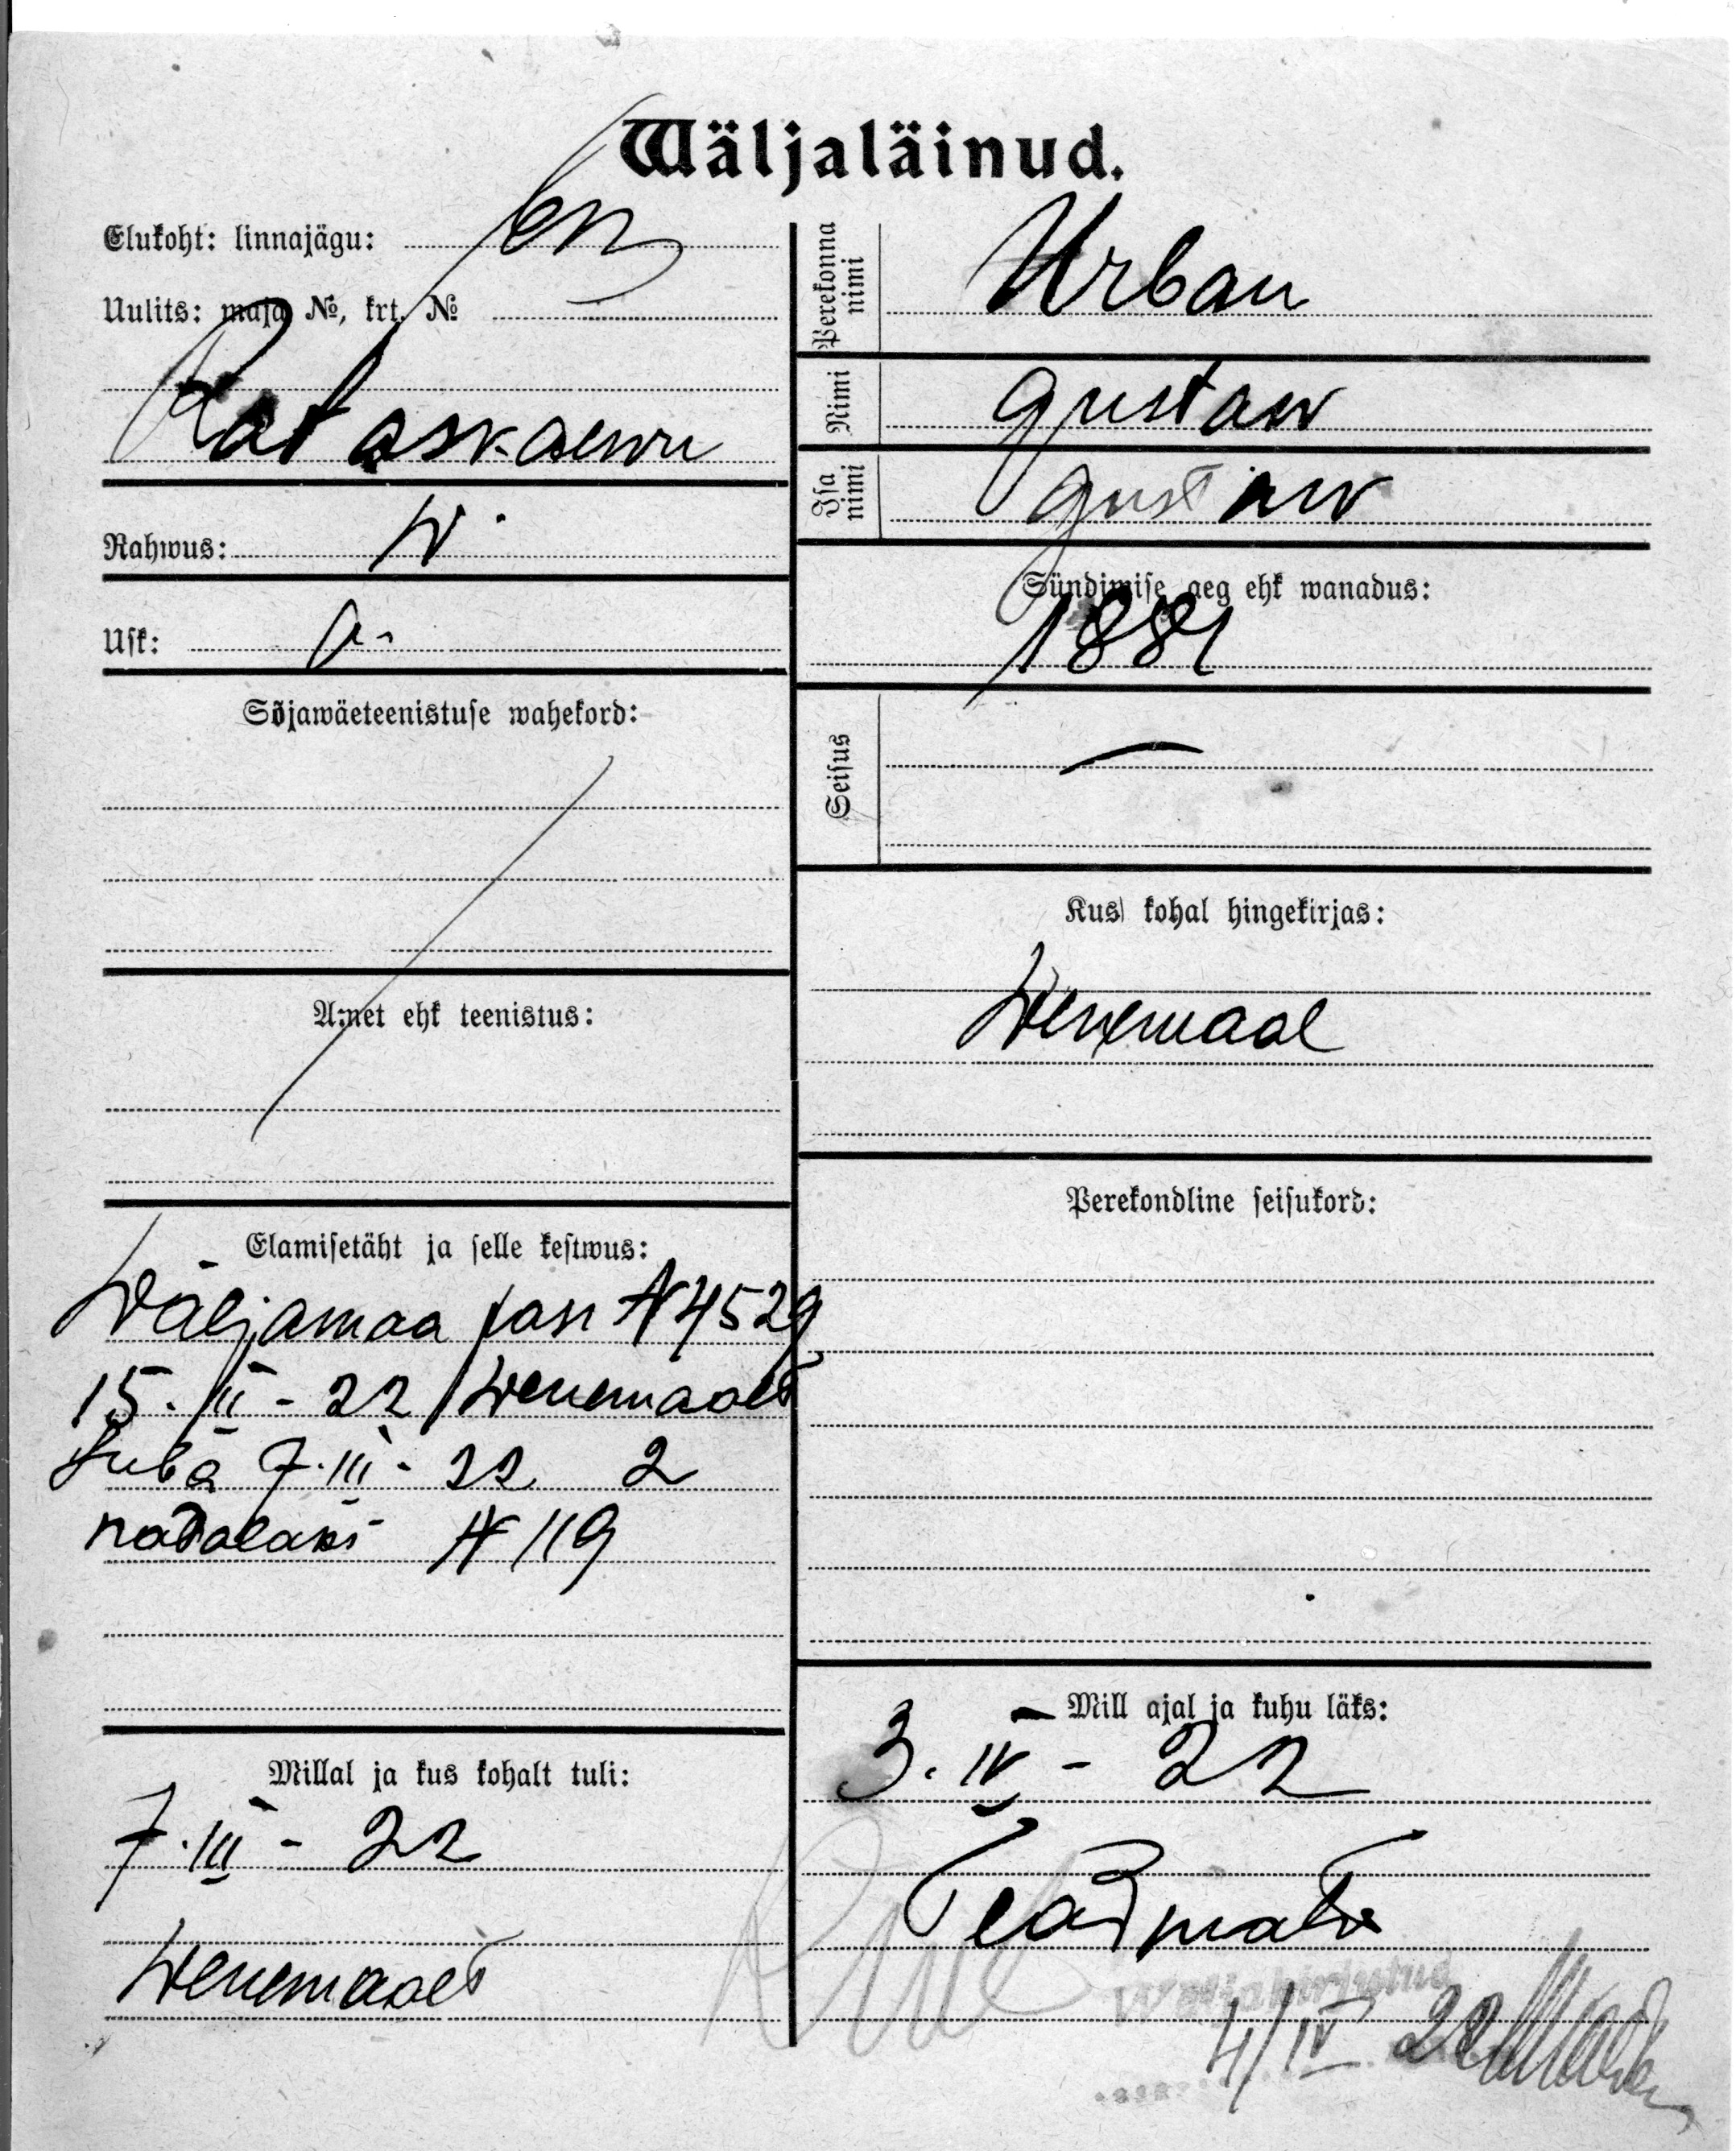 Wäljaläinud.
Elukoht: linnajägu:
Uulits: maja №, krt. №
Rataskaewu
Rahwus: W.
Usk:
Sõjawäeteenistuse wahekord:
Amet ehk teenistus:
Elamisetäht ja selle kestwus:
Wäljamaa pass N 4529
15. II - 22 Wenemaalt
Luba 7. III - 22 2
nädalaks N 119
Millal ja kus kohalt tuli:
7. III - 22
Wenemaalt
Perekonna nimi
Urban
Nimi
Gustaw
Isa nimi
Gustaw
Sündimise aeg ehk wanadus:
1881
Seisus
—
Kus kohal hingekirjas:
Wenemaal
Perekondline seisukord:
Mill ajal ja kuhu läks:
3. IV - 22
Teadmata
Wäljakirjutus
4/IV 22